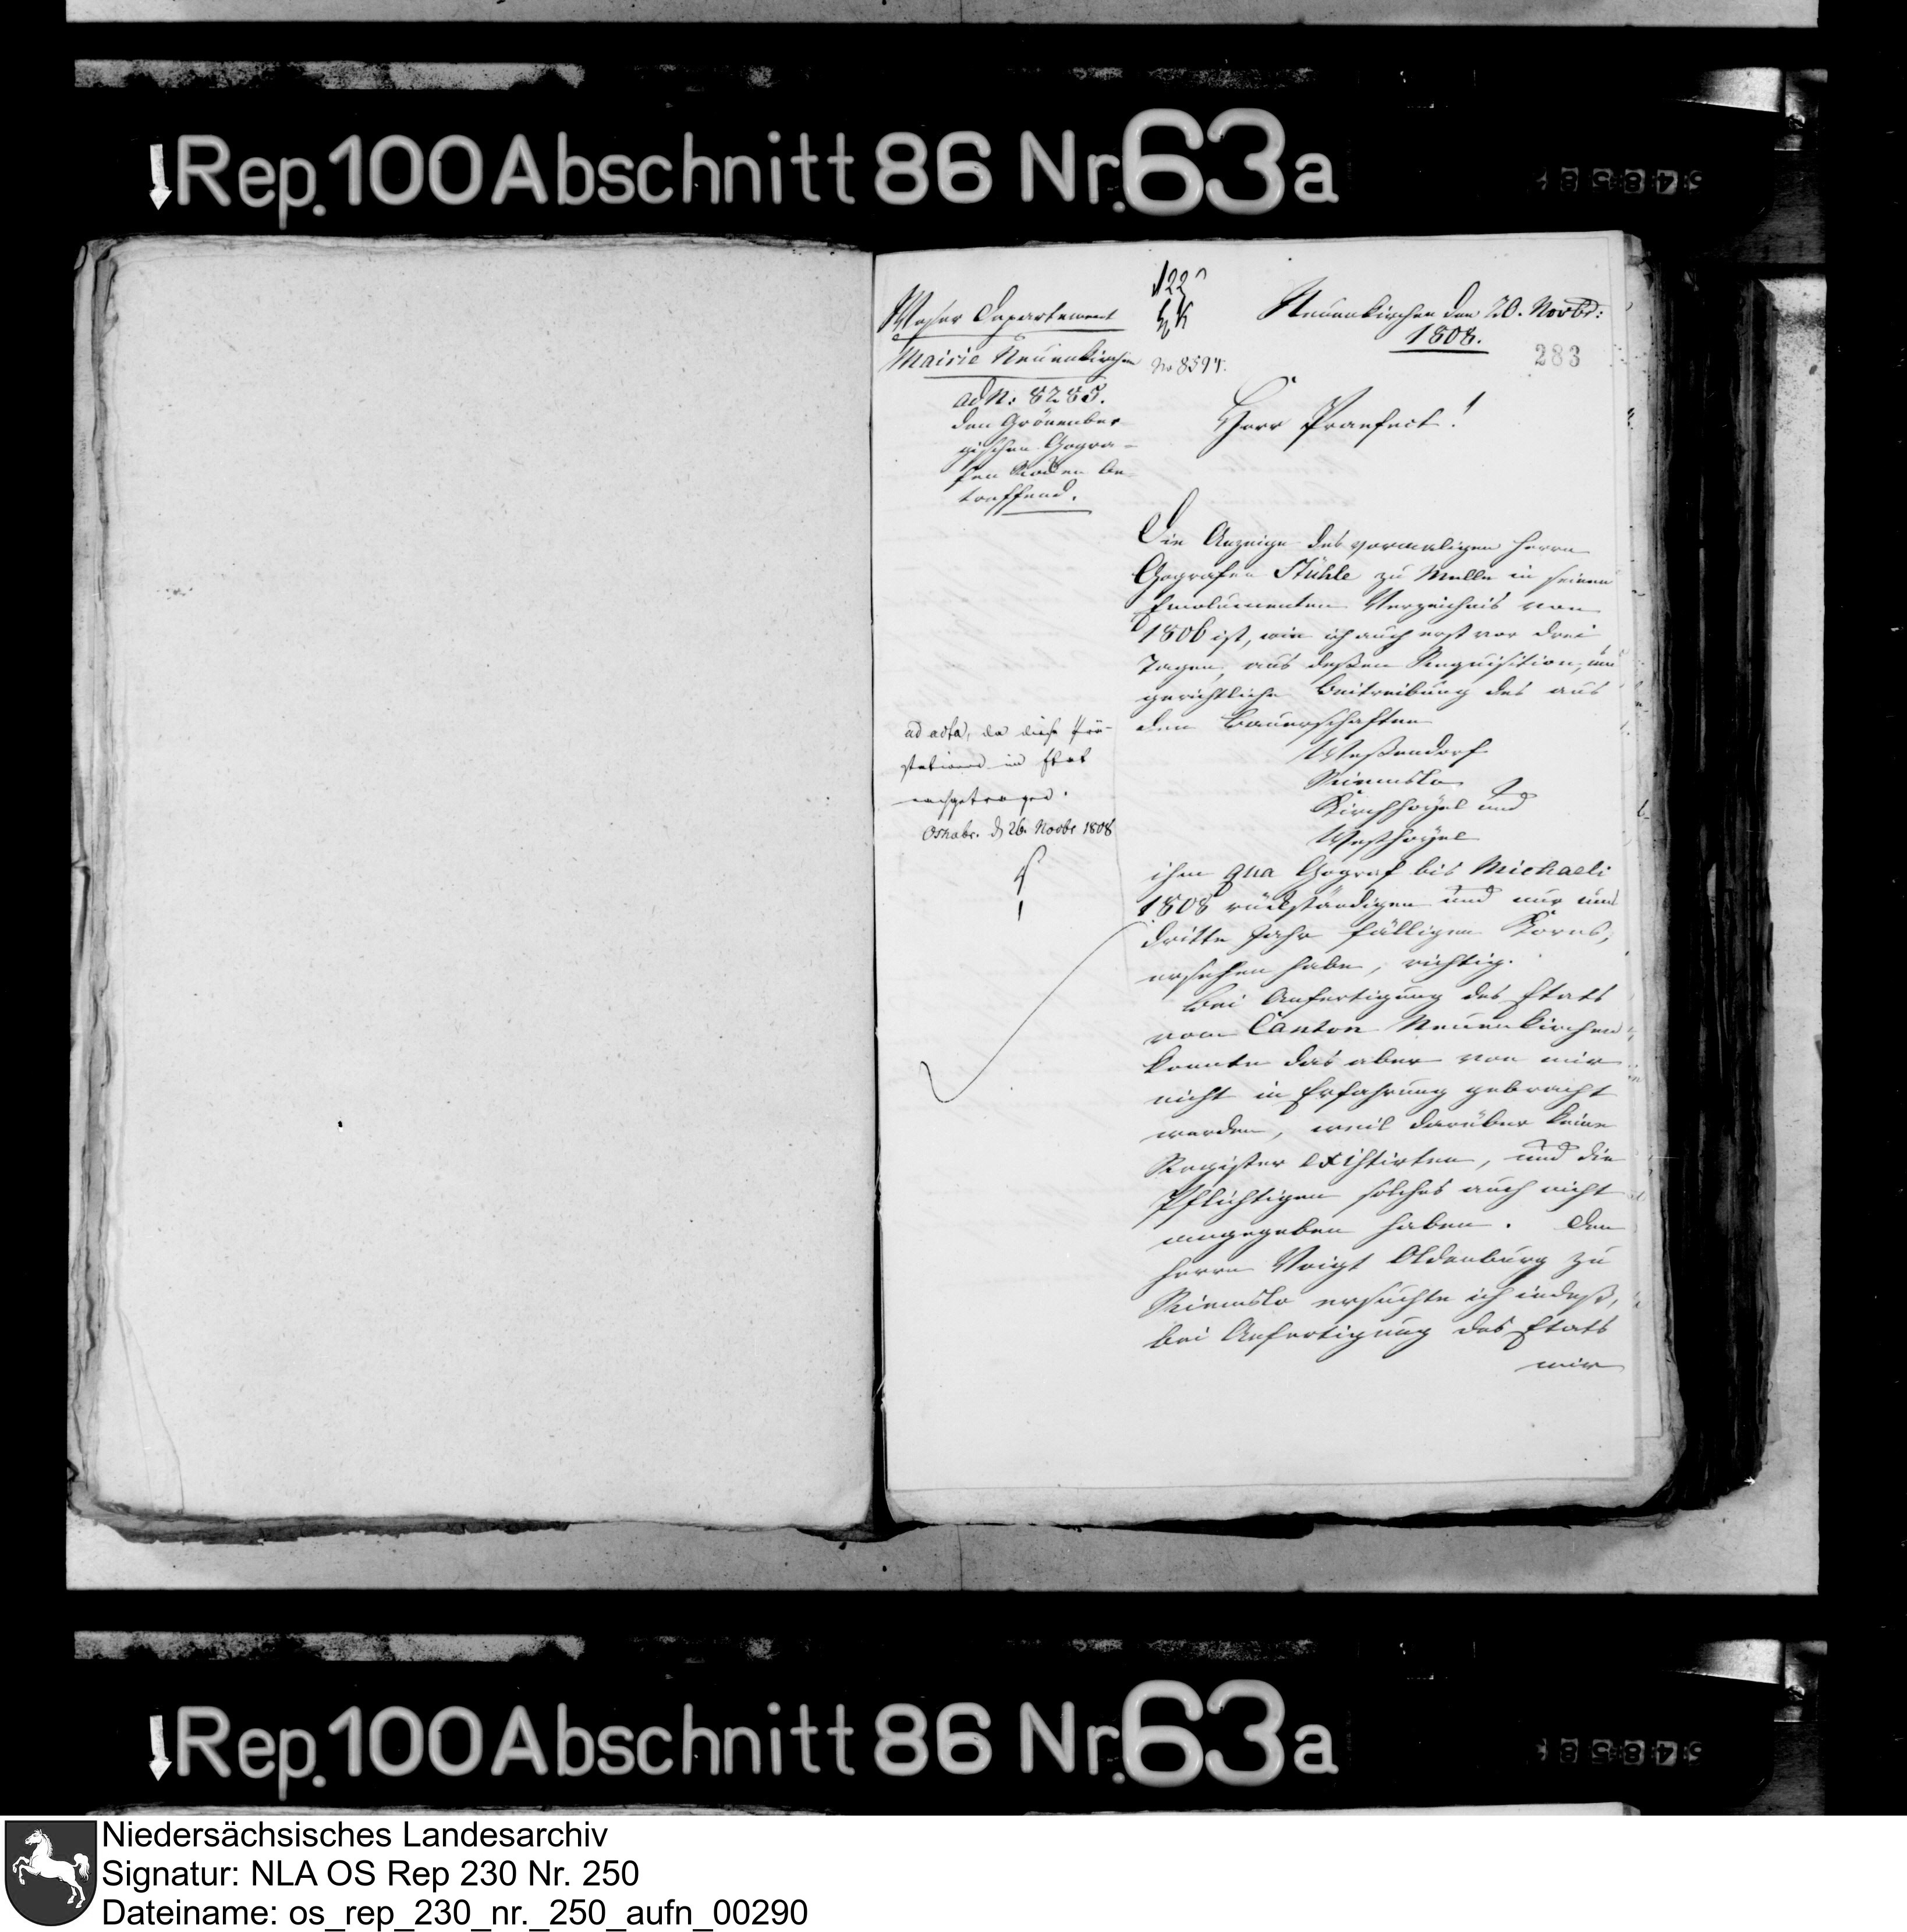 Rep. 100 Abschnitt 86 Nr. 63a
Weser Departement
Mairie Neuenkirchen
ad N: 8285.
den Grönenber-
gischen Gogra-
fen be-
treffend.
122
No 8594.
Neuenkirchen den 20. Novbr:
1808.
283
Herr Praefect!
Die Anzeige des vormaligen Herrn
Gografen Stühle zu Melle in seinem
Emolumenten Verzeichnis von
1806 ist, wie ich auch erst vor drei
Tagen, aus deßen Requisition, um
gerichtliche Beitreibung des aus
den Bauerschaften
Weßendorf
Riemslo
Kirchhoyel und
Westhoyel
ihm qua Gograf bis Michaeli
1808 rückständigen und nur ums
dritte Jahr fälligen Korns,
ersehen habe, richtig.
Bei Anfertigung des Etats
vom Canton Neuenkirchen
konnte das aber von mir
nicht in Erfahrung gebracht
werden, weil darüber keine
Register existirten, und die
Pflichtigen solches auch nicht
angegeben haben. Den
Herrn Voigt Oldenburg zu
Riemslo ersuchte ich indeß,
bei Anfertigung des Etats
mir
ad acta, da diese Prä-
stationen im Etat
nachgetragen.
Osnabr. d 26. Novbr 1808
Rep. 100 Abschnitt 86 Nr. 63a
Niedersächsisches Landesarchiv
Signatur: NLA OS Rep 230 Nr. 250
Dateiname: os_rep_230_nr._250_aufn_00290